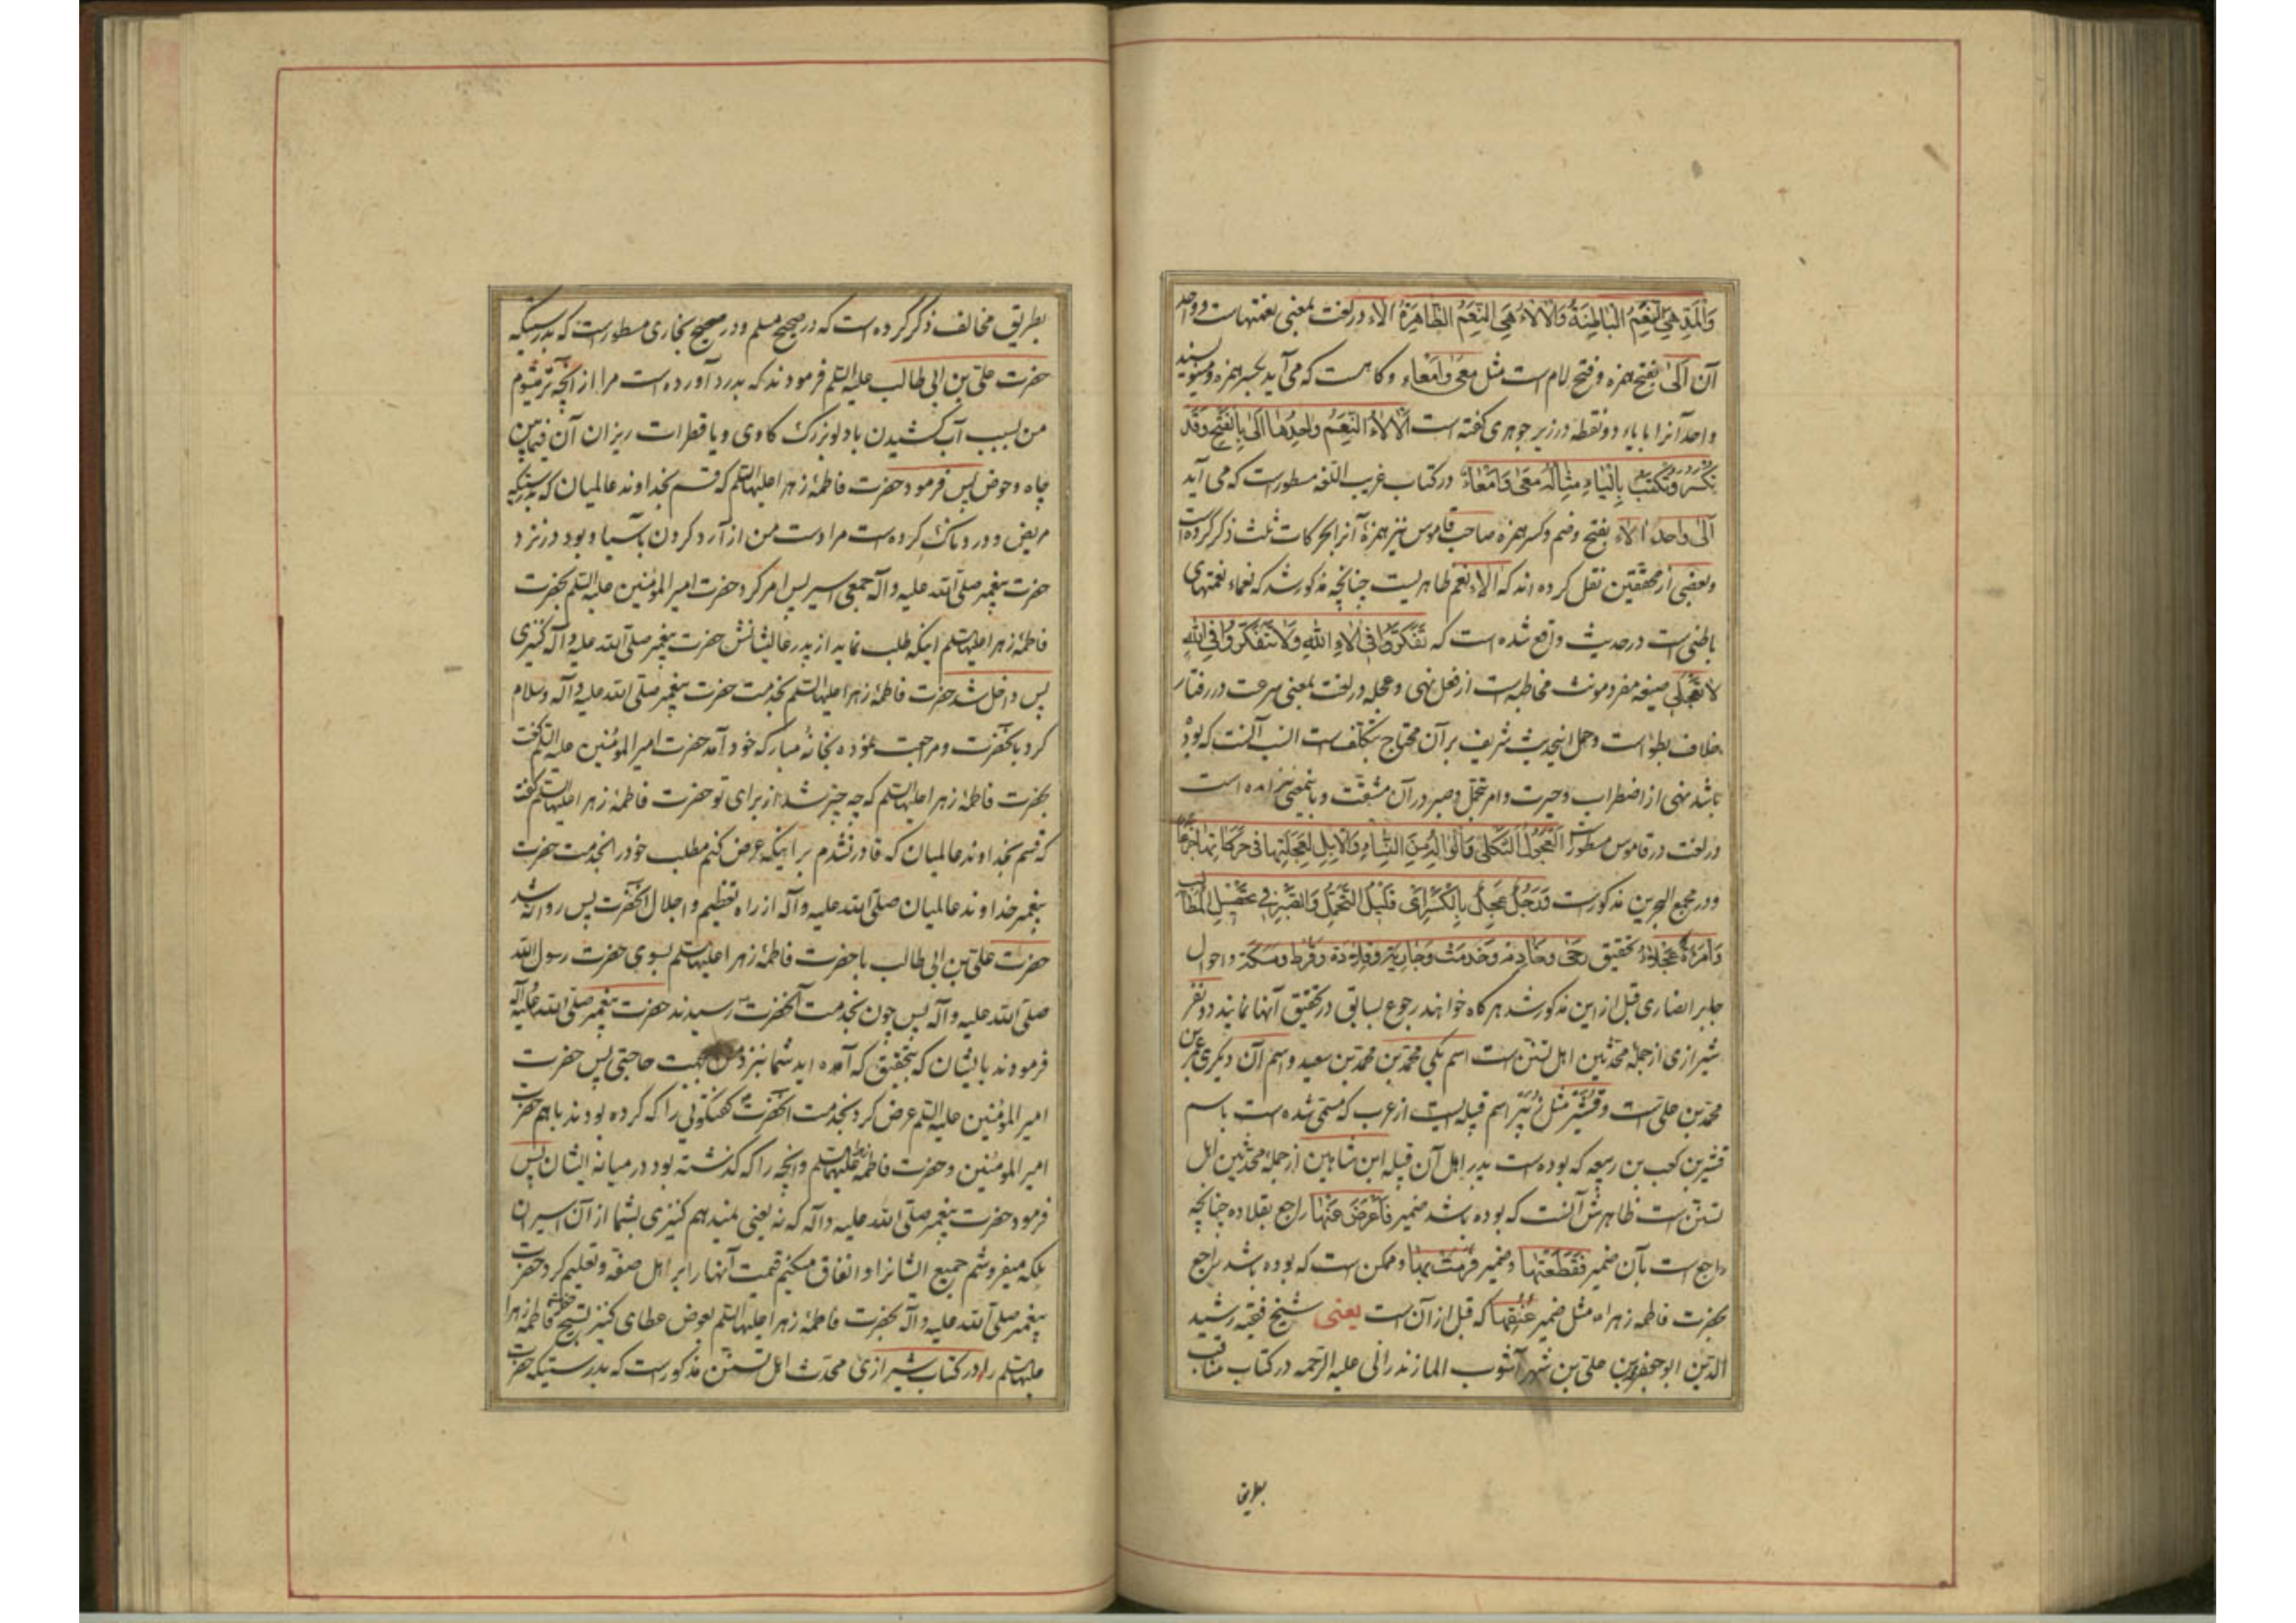 وَالْمَدِّ هِيَ النِّعَمُ الْبَاطِنَةُ وَالْآلَاءُ هِيَ النِّعَمُ الظَّاهِرَةُ آلاء در لغت بمعنی نعمتهاست و واحد
آن اَلیٰ بفتح همزه و فتح لام است مثل مَعیٰ وَاَمْعَاء و گاهست که می آید بکسر همزه و مینویسند
واحد آنرا با یاء دو نقطه در زیر جوهری گفته است اَلْآلَاءُ النِّعَمُ وَاحِدُهَا اَلیٰ بِالْفَتْحِ وَقَدْ
تُکْسَرُ وَتُکْتَبُ بِالْیَاءِ مِثَالُهُ مَعیٰ وَاَمْعَاءٌ در کتاب غریب اللغه مسطور است که می آید
اَلیٰ واحد آلاء بفتح و ضم و کسر همزه صاحب قاموس نیز همزهٔ آنرا بحرکات ثلث ذکر کرده است
و بعضی از محققین نقل کرده اند که آلاء نعم ظاهریست چنانچه مذکور شد که نعماء نعمتهای
باطنی است در حدیث واقع شده است که تَفَکَّرُوا فِی آلَاءِ اللّٰهِ وَلَا تَتَفَکَّرُوا فِی اللّٰهِ
لَا تَعْجَلِی صیغه مفرد مونث مخاطبه است از فعل نهی و عجله در لغت بمعنی سرعت در رفتار
خلاف بطؤ است و حمل این حدیث شریف بر آن محتاج بتکلف است انسب آنست که بوده
باشد نهی از اضطراب و حیرت و امر بتحمل و صبر در آن مشقت و باینمعنی نیز آمده است
در لغت در قاموس مسطور است اَلْعَجُولُ الثَّکْلیٰ وَالْوَالِهُ مِنَ النِّسَاءِ وَالْاِبِلِ لِعَجَلَتِهَا فِی حَرَکَاتِهَا جَزَعًا
و در مجمع البحرین مذکور است وَرَجُلٌ عَجِلٌ بِالْکَسْرِ اَیْ قَلِیلُ التَّحَمُّلِ وَالصَّبْرِ فِی تَحْصِیلِ الْمَطَالِبِ
وَامْرَأَةٌ عَجْلَاءُ تحقیق رَحیٰ و خَادِم و خَدَمَت و جَارِیَة و قِلَادَة و قُرْط و مَسَکَة و احوال
جابر انصاری قبل از این مذکور شد هرگاه خواهند رجوع بسابق در تحقیق آنها نمایند دو نفر
شیرازی از جمله محدثین اهل تسنن است اسم یکی محمد بن محمد بن سعید و اسم آن دیگری عمر بن
محمد بن علی است و قُشَیْر مثل زُبَیْر اسم قبیله ایست از عرب که مسمی شده است باسم
قشیر بن کعب بن ربیعه که بوده است پدر اهل آن قبیله ابن شاهین از جمله محدثین اهل
تسنن است ظاهرش آنست که بوده باشد ضمیر فَاَعْرَضَ عَنْهَا راجع بقلاده چنانچه
راجع است بآن ضمیر فَقَطَعَتْهَا و ضمیر فَرَمَتْ بِهَا و ممکن است که بوده باشد راجع
بحضرت فاطمه زهراء مثل ضمیر عُنُقِهَا که قبل از آن است یعنی شیخ فقیه رشید
الدین ابو جعفر محمد بن علی بن شهر آشوب المازندرانی علیه الرحمه در کتاب مناقب
بطریق
بطریق مخالف ذکر کرده است که در صحیح مسلم و در صحیح بخاری مسطور است که بدرستیکه
حضرت علی بن ابی طالب علیه السلم فرمودند که بدرد آورده است مرا از آنچه
من بسبب آب کشیدن با دلو بزرگ کاوی و یا قطرات ریزان آن فیمابین
چاه و حوض پس فرمود حضرت فاطمهٔ زهرا علیها السلم که قسم بخداوند عالمیان که بدرستیکه
مریض و دردناک کرده است مرا دست من از آرد کردن بآسیا و بود در نزد
حضرت پیغمبر صلی الله علیه و آله جمعی اسیر پس امر کرد حضرت امیر المؤمنین علیه السلم بحضرت
فاطمهٔ زهرا علیها السلم اینکه طلب نماید از پدر عالیشانش حضرت پیغمبر صلی الله علیه و آله کنیزی
پس داخل شد حضرت فاطمهٔ زهرا علیها السلم بخدمت حضرت پیغمبر صلی الله علیه و آله و سلام
کرد بآنحضرت و مراجعت نموده بخانهٔ مبارکه خود آمد حضرت امیر المؤمنین علیه السلم گفت
بحضرت فاطمهٔ زهرا علیها السلم که چه چیز شد از برای تو حضرت فاطمهٔ زهرا علیها السلم گفت
که قسم بخداوند عالمیان که قادر نشدم بر اینکه عرض کنم مطلب خود را بخدمت حضرت
پیغمبر خداوند عالمیان صلی الله علیه و آله از راه تعظیم و اجلال آنحضرت پس روانه شد
حضرت علی بن ابی طالب با حضرت فاطمهٔ زهرا علیها السلم بسوی حضرت رسول الله
صلی الله علیه و آله پس چون بخدمت آنحضرت رسیدند حضرت پیغمبر صلی الله علیه و آله
فرمودند بایشان که بتحقیق که آمده اید شما بنزد من بجهت حاجتی پس حضرت
امیر المؤمنین علیه السلم عرض کرد بخدمت آنحضرت گفتگوئی را که کرده بودند باهم حضرت
امیر المومنین و حضرت فاطمه زهرا علیها السلم و آنچه را که گذشته بود در میانه ایشان پس
فرمود حضرت پیغمبر صلی الله علیه و آله که نه یعنی نمیدهم کنیزی بشما از آن اسیران
بلکه میفروشم جمیع ایشانرا و انفاق میکنم قیمت آنها را بر اهل صفه و تعلیم کرد حضرت
پیغمبر صلی الله علیه و آله بحضرت فاطمهٔ زهرا علیها السلم بعوض عطای کنیز تسبیح حضرت فاطمه زهرا
علیها السلم را در کتاب شیرازی محدث اهل تسنن مذکور است که بدرستیکه حضرت